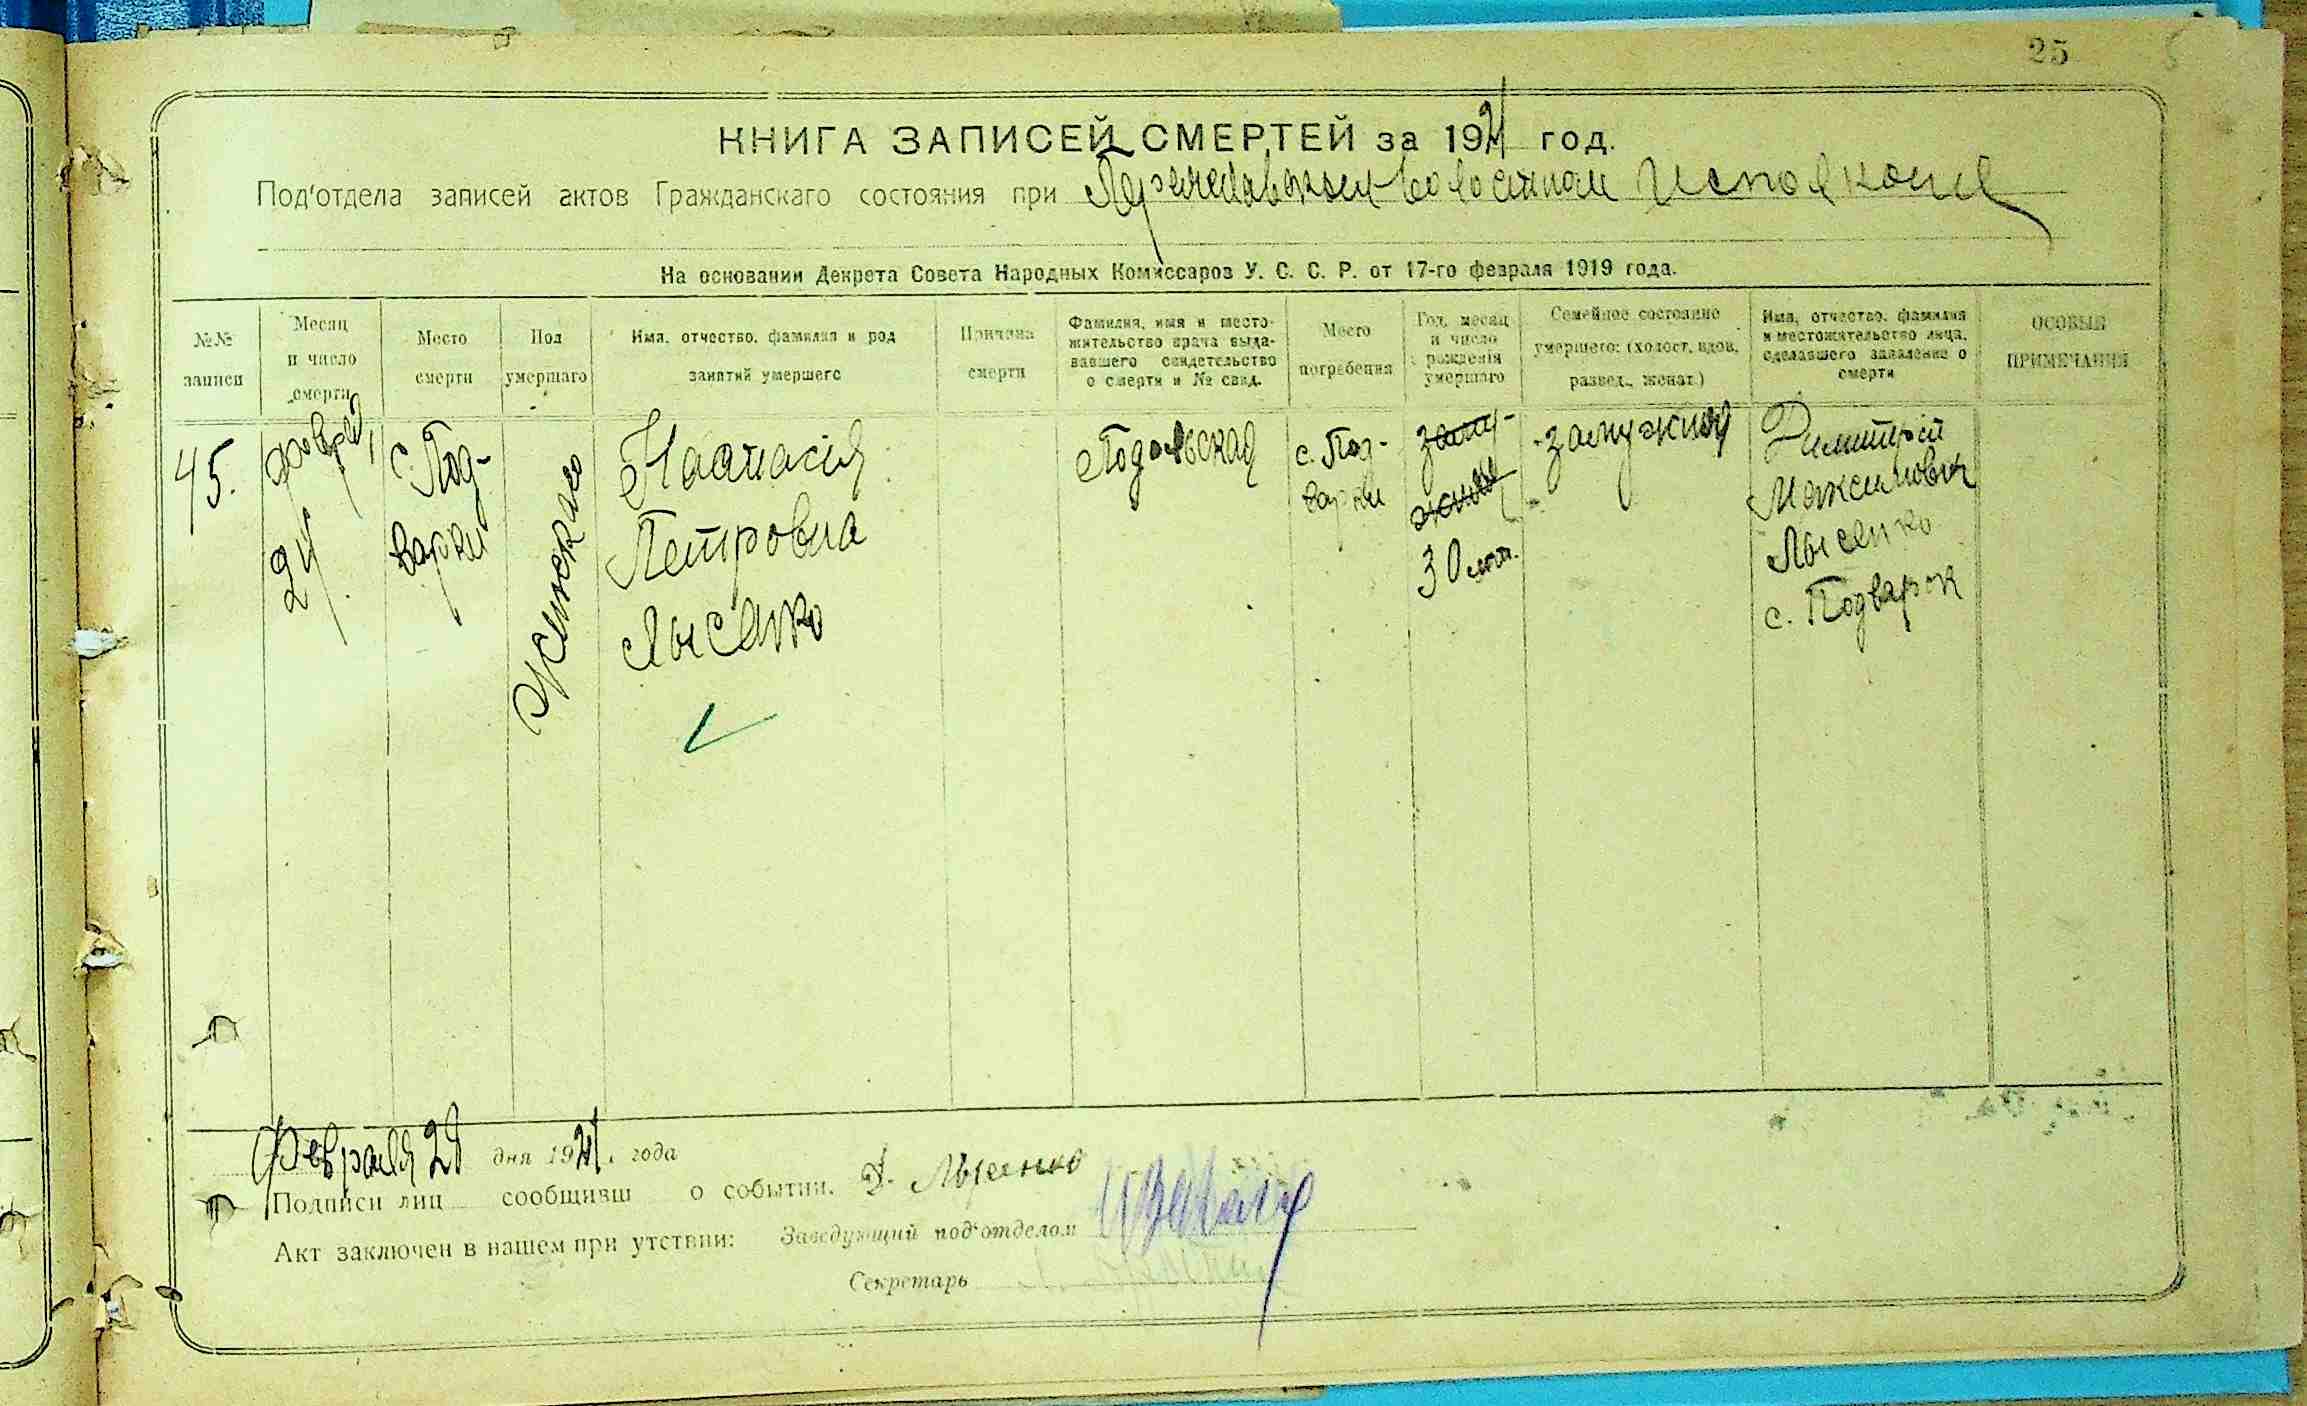 25
КНИГА ЗАПИСЕЙ СМЕРТЕЙ за 1921 год.
Под'отдела записей актов Гражданскаго состояния при Переяславском Волостном Исполкоме
На основании Декрета Совета Народных Комиссаров У. С. С. Р. от 17-го февраля 1919 года.
№№ записи
Месяц и число смерти
Место смерти
Пол умершаго
Имя, отчество, фамилия и род занятий умершего
Причина смерти
Фамилия, имя и место-
жительство врача выда-
вавшего свидетельство
о смерти и № свид.
Место погребения
Год, месяц и число рождения умершаго
Семейное состояние умершего: (холост, вдов, развед., женат.)
Имя, отчество, фамилия
и местожительство лица,
сделавшего заявление о
смерти
ОСОБЫЕ ПРИМЕЧАНИЯ
45.
24
с. Под-
варки
женскаго
Настасия
Петровна
Лысенко
Подольская
с. Под-
варки
заму-
жняя
30 лет.
замужняя
Димитрий
Максимович
Лысенко
с. Подварок
Февраля 28 дня 1921. года
Подписи лиц сообщивш о событии. Д. Лысенко
Акт заключен в нашем при утствии: Заведующий под'отделом
Секретарь